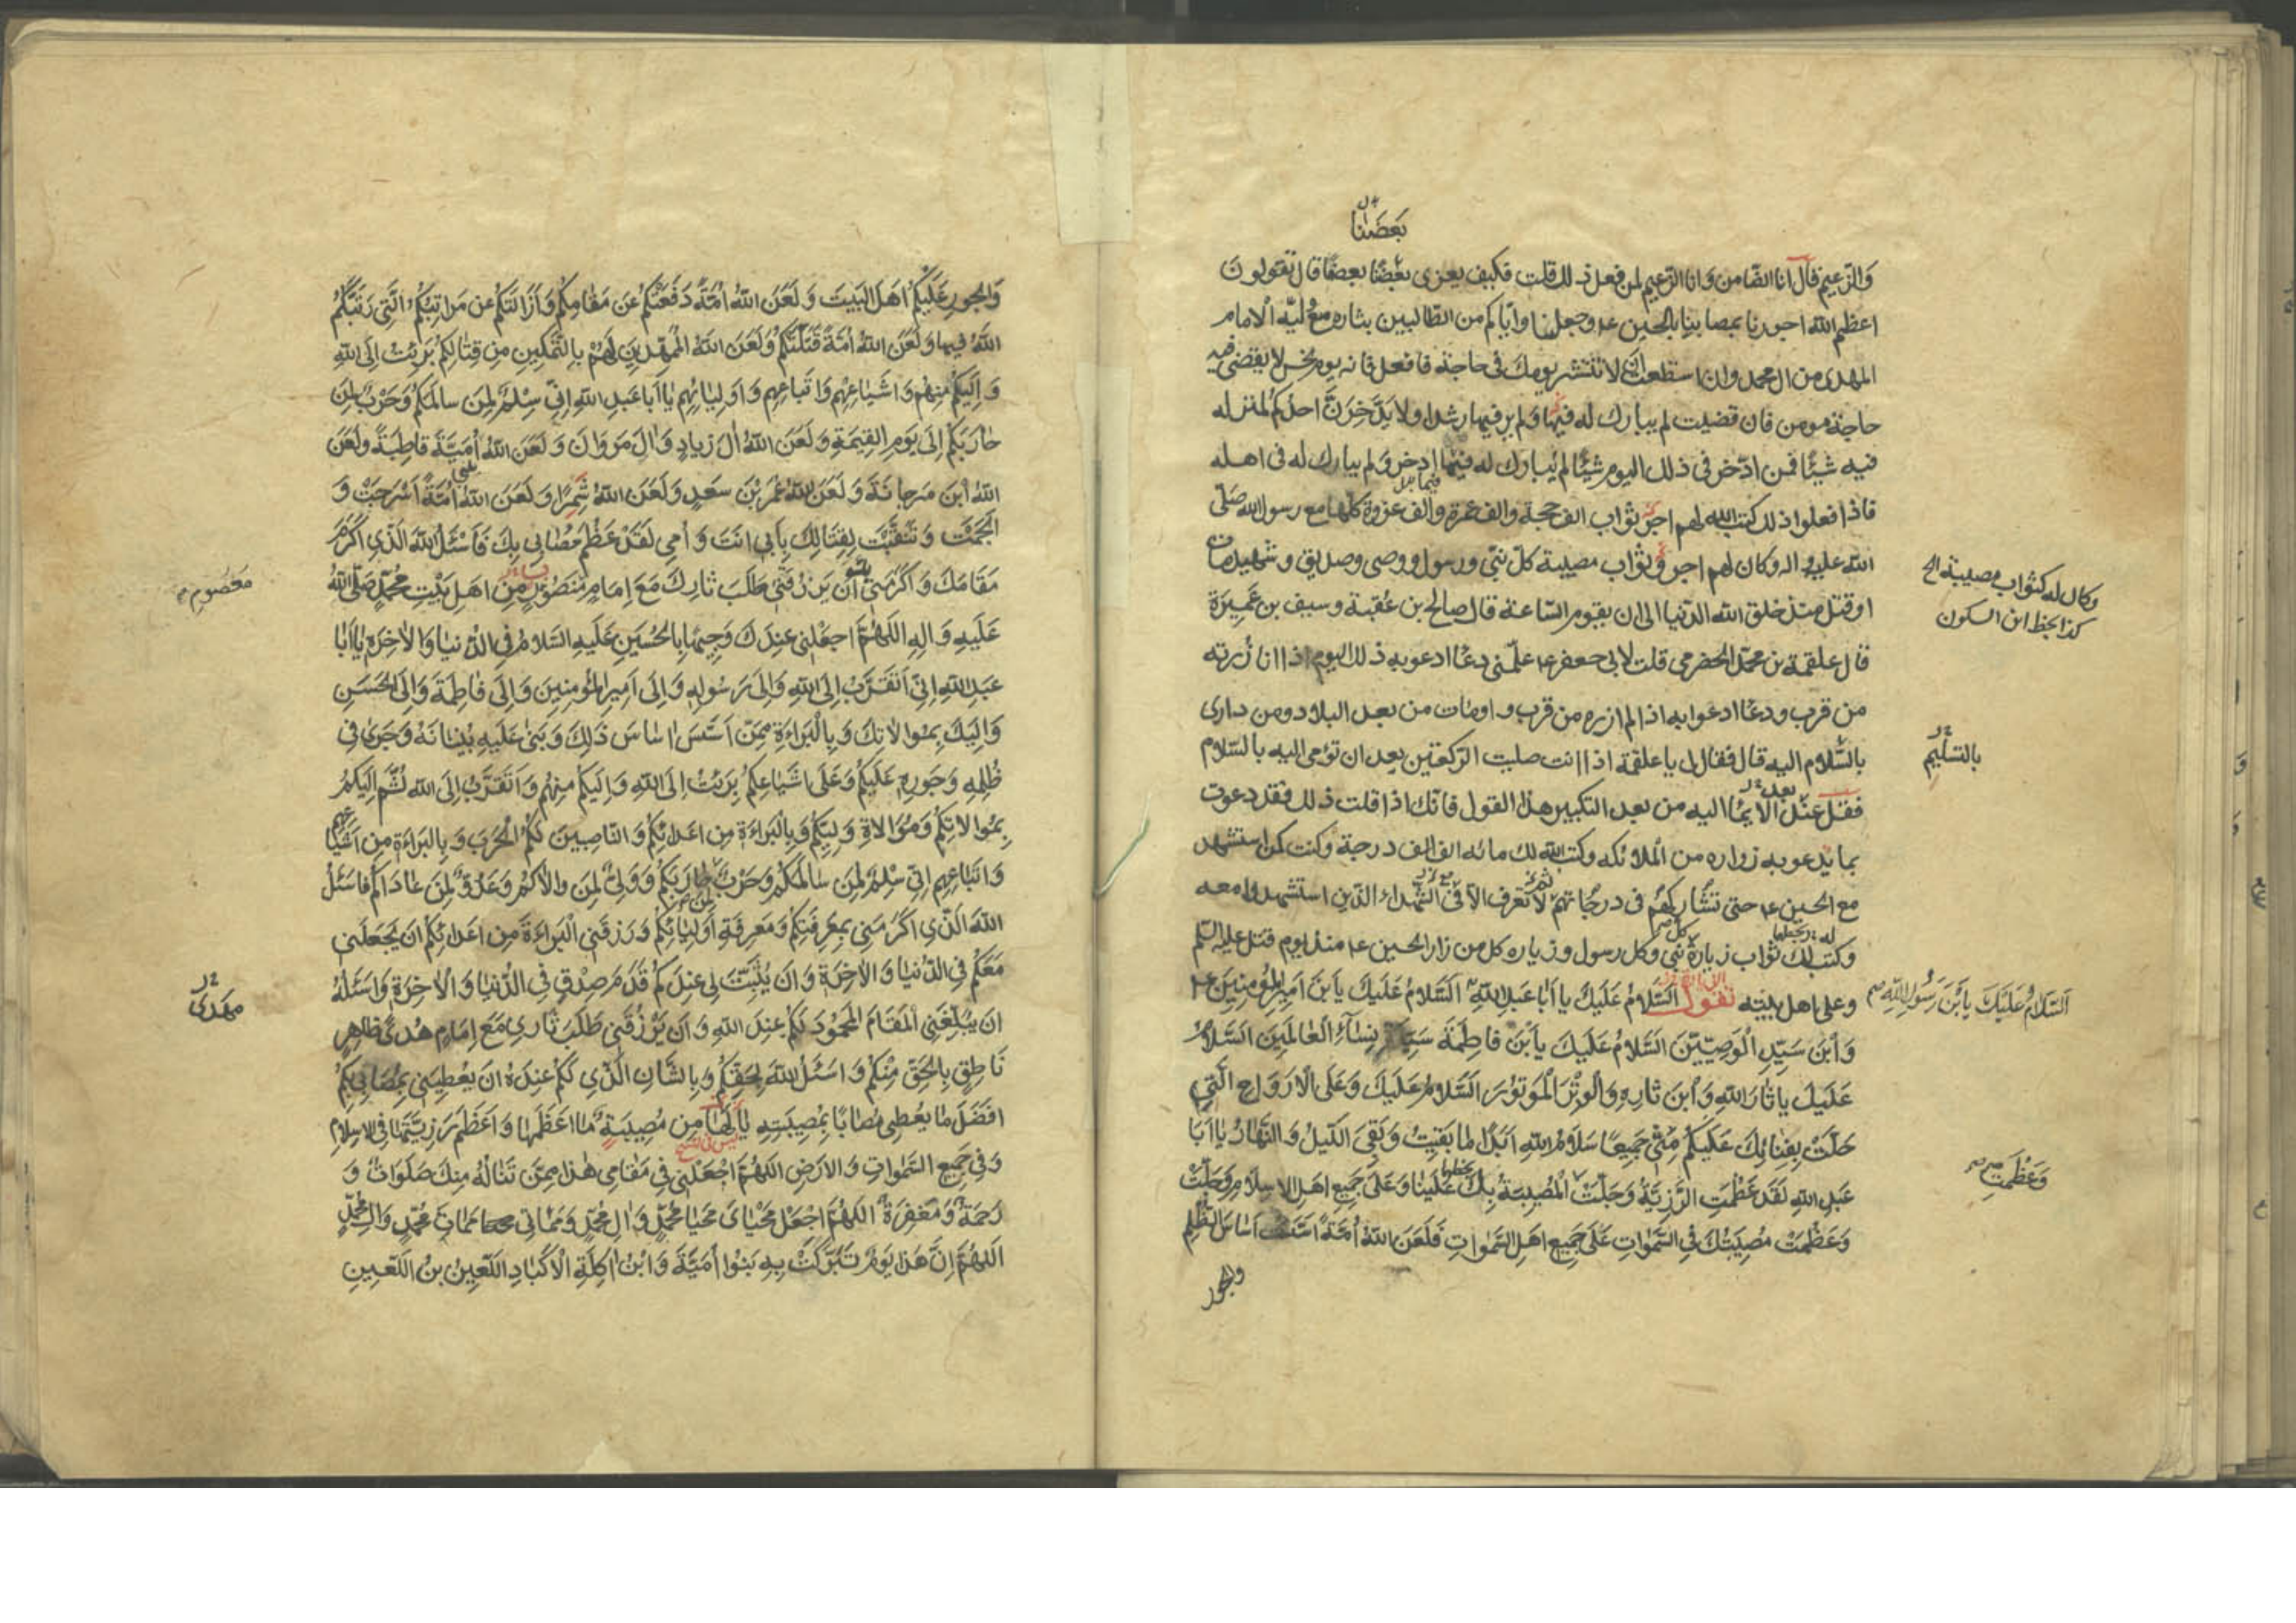 بَعضُنا
وَالزّعيم قال انا الضّامن وَانا الزّعيم لمن فعل ذلك قلت فكيف يعزى بعضُنا بعضًا قال تقولونَ
اعظم الله اجورنا بمصابنا بالحسين ع وجعلنا واياكم من الطالبين بثاره مع وليّه الامام
المهدى من ال محمد وان استطعت ان لا تنتشر يومك فى حاجة فافعل فانه يوم نحس لا يقضى فيه
حاجة مومن فان قضيت لم يبارك له فيها ولم ير فيها رشدا ولا يدّخرنّ احدكم لمنزله
فيه شيئًا فمن ادّخر فى ذلك اليوم شيئًا لم يُبارك له فيما ادخر ولم يبارك له فى اهله
فاذا فعلوا ذلك كتب الله لهم اجر ثواب الف حجة والف عمرة والف غزوة كلها مع رسول الله صَلّى
الله عليه واله وكان لهم اجر وثواب مصيبة كلّ نبّى ورسول ووصى وصديق وشهيد مات
وكان له كثواب مصيبة الخ
كذا بخط ابن السكون
او قتل منذ خلق الله الدّنيا الى ان يقوم السّاعة قال صالح بن عُقبة وسيف بن عَمِيرَة
قال علقمة بن محمّد الحضرمى قلت لابى جعفر ع علّمنى دعًا ادعو به ذلك اليوم اذا انا زُرته
من قرب ودعًا ادعوا به اذا لم ازره من قرب واومات من بعد البلاد ومن دارى
بالسَّلام اليه قال فقال لى يا علقمة اذا انت صليت الرّكعتين بعد ان تومى اليه بالسّلام
بالتسليم
فقل عند الايمآ اليه من بعد التكبير هذا القول فانك اذا قلت ذلك فقد دعوت
بعد
بما يدعو به زواره من الملائكه وكتب الله لك مائه الف الف درجة وكنت كمن استشهد
مع الحسين ع حتى تشاركهم فى درجاتهم لا تعرف الّا فى الشّهداء الذين استشهدوا معه
وكتب لك ثواب زيارة نبّى وكل رسول وزياره كل من زار الحسين ع منذ يوم قتل عليه السّلم
وعلى اهل بيته تقول السَّلامُ عَلَيكَ يا اَبا عَبدِ اللهِ اَلسَّلامُ عَلَيكَ يا بنَ اَميرِ المُؤمِنينَ
اَلسَّلامُ عَلَيكَ يا بنَ رَسُولِ اللهِ
وَابنَ سَيِّدِ الوَصِيّينَ السَّلامُ عَلَيكَ يا بنَ فاطِمَةَ سَيِّدَةِ نِسآءِ العالَمينَ السَّلامُ
عَلَيكَ يا ثارَ اللهِ وَابنَ ثارِهِ وَالوِترَ المَوتُورَ السَّلامُ عَلَيكَ وَعَلَى الاَرواحِ الَّتي
حَلَّت بِفِنائِكَ عَلَيكُم مِنّي جَميعًا سَلامُ اللهِ اَبَدًا ما بَقيتُ وَبَقِيَ اللَّيلُ وَالنَّهارُ يا اَبا
عَبدِ اللهِ لَقَد عَظُمَتِ الرَّزِيَّةُ وَجَلَّتِ المُصيبَةُ بِكَ عَلَينا وَعَلى جَميعِ اَهلِ الاِسلامِ وَجَلَّت
وَعَظُمَتِ
وَعَظُمَت مُصيبَتُكَ فِي السَّمواتِ عَلى جَميعِ اَهلِ السَّمواتِ فَلَعَنَ اللهُ اُمَّةً اَسَّسَت اَساسَ الظُّلمِ
والجور
وَالجورِ عَلَيكُم اَهلَ البَيتِ وَلَعَنَ اللهُ اُمَّةً دَفَعَتكُم عَن مَقامِكُم وَاَزالَتكُم عن مَراتِبِكُم الَّتي رَتَّبَكُم
اللهُ فيها وَلَعَنَ اللهُ اُمَّةً قَتَلَتكُم وَلَعَنَ اللهُ المُمَهِّدينَ لَهُم بِالتَّمكينِ مِن قِتالِكُم بَرِئتُ اِلَى اللهِ
وَاِلَيكُم مِنهُم وَاَشياعِهِم وَاَتباعِهِم وَاَولِيائِهِم يا اَبا عَبدِ اللهِ اِنّي سِلمٌ لِمَن سالَمَكُم وَحَربٌ لِمَن
حارَبَكُم اِلى يَومِ القِيمَةِ وَلَعَنَ اللهُ الَ زِيادٍ وَالَ مَروانَ وَلَعَنَ اللهُ بَني اُمَيَّةَ قاطِبَةً وَلَعَنَ
اللهُ ابنَ مَرجانَةَ وَلَعَنَ اللهُ عُمَرَ بنَ سَعدٍ وَلَعَنَ اللهُ شِمرًا وَلَعَنَ اللهُ اُمَّةً اَسرَجَت وَ
اَلجَمَت وَتَنَقَّبَت لِقِتالِكَ بِاَبي اَنتَ وَاُمي لَقَد عَظُمَ مُصابي بِكَ فَاَسئَلُ اللهَ الَّذي اَكرَمَ
مَقامَكَ وَاَكرَمَني اَن يَرزُقَني طَلَبَ ثارِكَ مَعَ اِمامٍ مَنصُورٍ مِن اَهلِ بَيتِ مُحَمَّدٍ صَلَّى اللهُ
مَعصُومٍ
عَلَيهِ وَالِهِ اللّهُمَّ اجعَلني عِندَكَ وَجيهًا بِالحُسَينِ عَلَيهِ السَّلامُ فِي الدُّنيا وَالاخِرَةِ يا اَبا
عَبدِ اللهِ اِنّي اَتَقَرَّبُ اِلَى اللهِ وَاِلى رَسُولِهِ وَاِلى اَميرِ المُؤمِنينَ وَاِلى فاطِمَةَ وَاِلَى الحَسَنِ
وَاِلَيكَ بِمُوالاتِكَ وَبِالبَراءَةِ مِمَّن اَسَّسَ اَساسَ ذلِكَ وَبَنى عَلَيهِ بُنيانَهُ وَجَرى في
ظُلمِهِ وَجَورِهِ عَلَيكُم وَعَلى اَشياعِكُم بَرِئتُ اِلَى اللهِ وَاِلَيكُم مِنهُم وَاَتَقَرَّبُ اِلَى اللهِ ثُمَّ اِلَيكُم
بِمُوالاتِكُم وَمُوالاةِ وَلِيِّكُم وَبِالبَراءَةِ مِن اَعدائِكُم وَالنّاصِبينَ لَكُمُ الحَربَ وَبِالبَراءَةِ مِن اَشياعِهِم
وَاَتباعِهِم اِنّي سِلمٌ لِمَن سالَمَكُم وَحَربٌ لِمَن حارَبَكُم وَوَلِيٌّ لِمَن والاكُم وَعَدُوٌّ لِمَن عاداكُم فَاَسئَلُ
اللهَ الَّذي اَكرَمَني بِمَعرِفَتِكُم وَمَعرِفَةِ اَولِيائِكُم وَرَزَقَني البَراءَةَ مِن اَعدائِكُم اَن يَجعَلَني
مَعَكُم فِي الدُّنيا وَالاخِرَةِ وَاَن يُثَبِّتَ لي عِندَكُم قَدَمَ صِدقٍ فِي الدُّنيا وَالاخِرَةِ وَاَسئَلُهُ
مَهدي
اَن يُبَلِّغَنِي المَقامَ المَحمُودَ لَكُم عِندَ اللهِ وَاَن يَرزُقَني طَلَبَ ثاري مَعَ اِمامِ هُدىً ظاهِرٍ
ناطِقٍ بِالحَقِّ مِنكُم وَاَسئَلُ اللهَ بِحَقِّكُم وَبِالشَّانِ الَّذي لَكُم عِندَهُ اَن يُعطِيَني بِمُصابي بِكُم
اَفضَلَ ما يُعطي مُصابًا بِمُصيبَتِهِ يا لَها مِن مُصيبَةٍ ما اَعظَمَها وَاَعظَمَ رَزِيَّتَها فِي الاِسلامِ
وَفي جَميعِ السَّمواتِ وَالاَرضِ اللّهُمَّ اجعَلني في مَقامي هذا مِمَّن تَنالُهُ مِنكَ صَلَواتٌ وَ
رَحمَةٌ وَمَغفِرَةٌ اللّهُمَّ اجعَل مَحيايَ مَحيا مُحَمَّدٍ وَالِ مُحَمَّدٍ وَمَماتي مَماتَ مُحَمَّدٍ وَالِ مُحَمَّدٍ
اللّهُمَّ اِنَّ هذا يَومٌ تَبَرَّكَت بِهِ بَنُوا اُمَيَّةَ وَابنُ اكِلَةِ الاَكبادِ اللَّعينُ بنُ اللَّعينِ